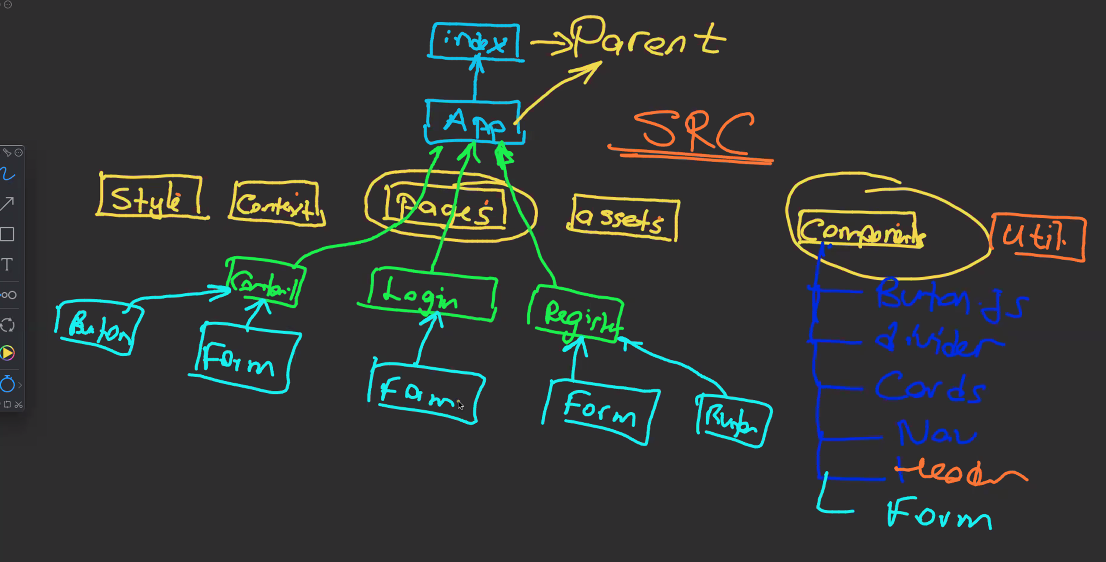 index
Parent
App
SRC
Style
Context
Pages
assets
Components
Util
Login
Register
Button
Form
Form
Form
Button
Buton Js
divider
Cards
Nav
Header
Form
T